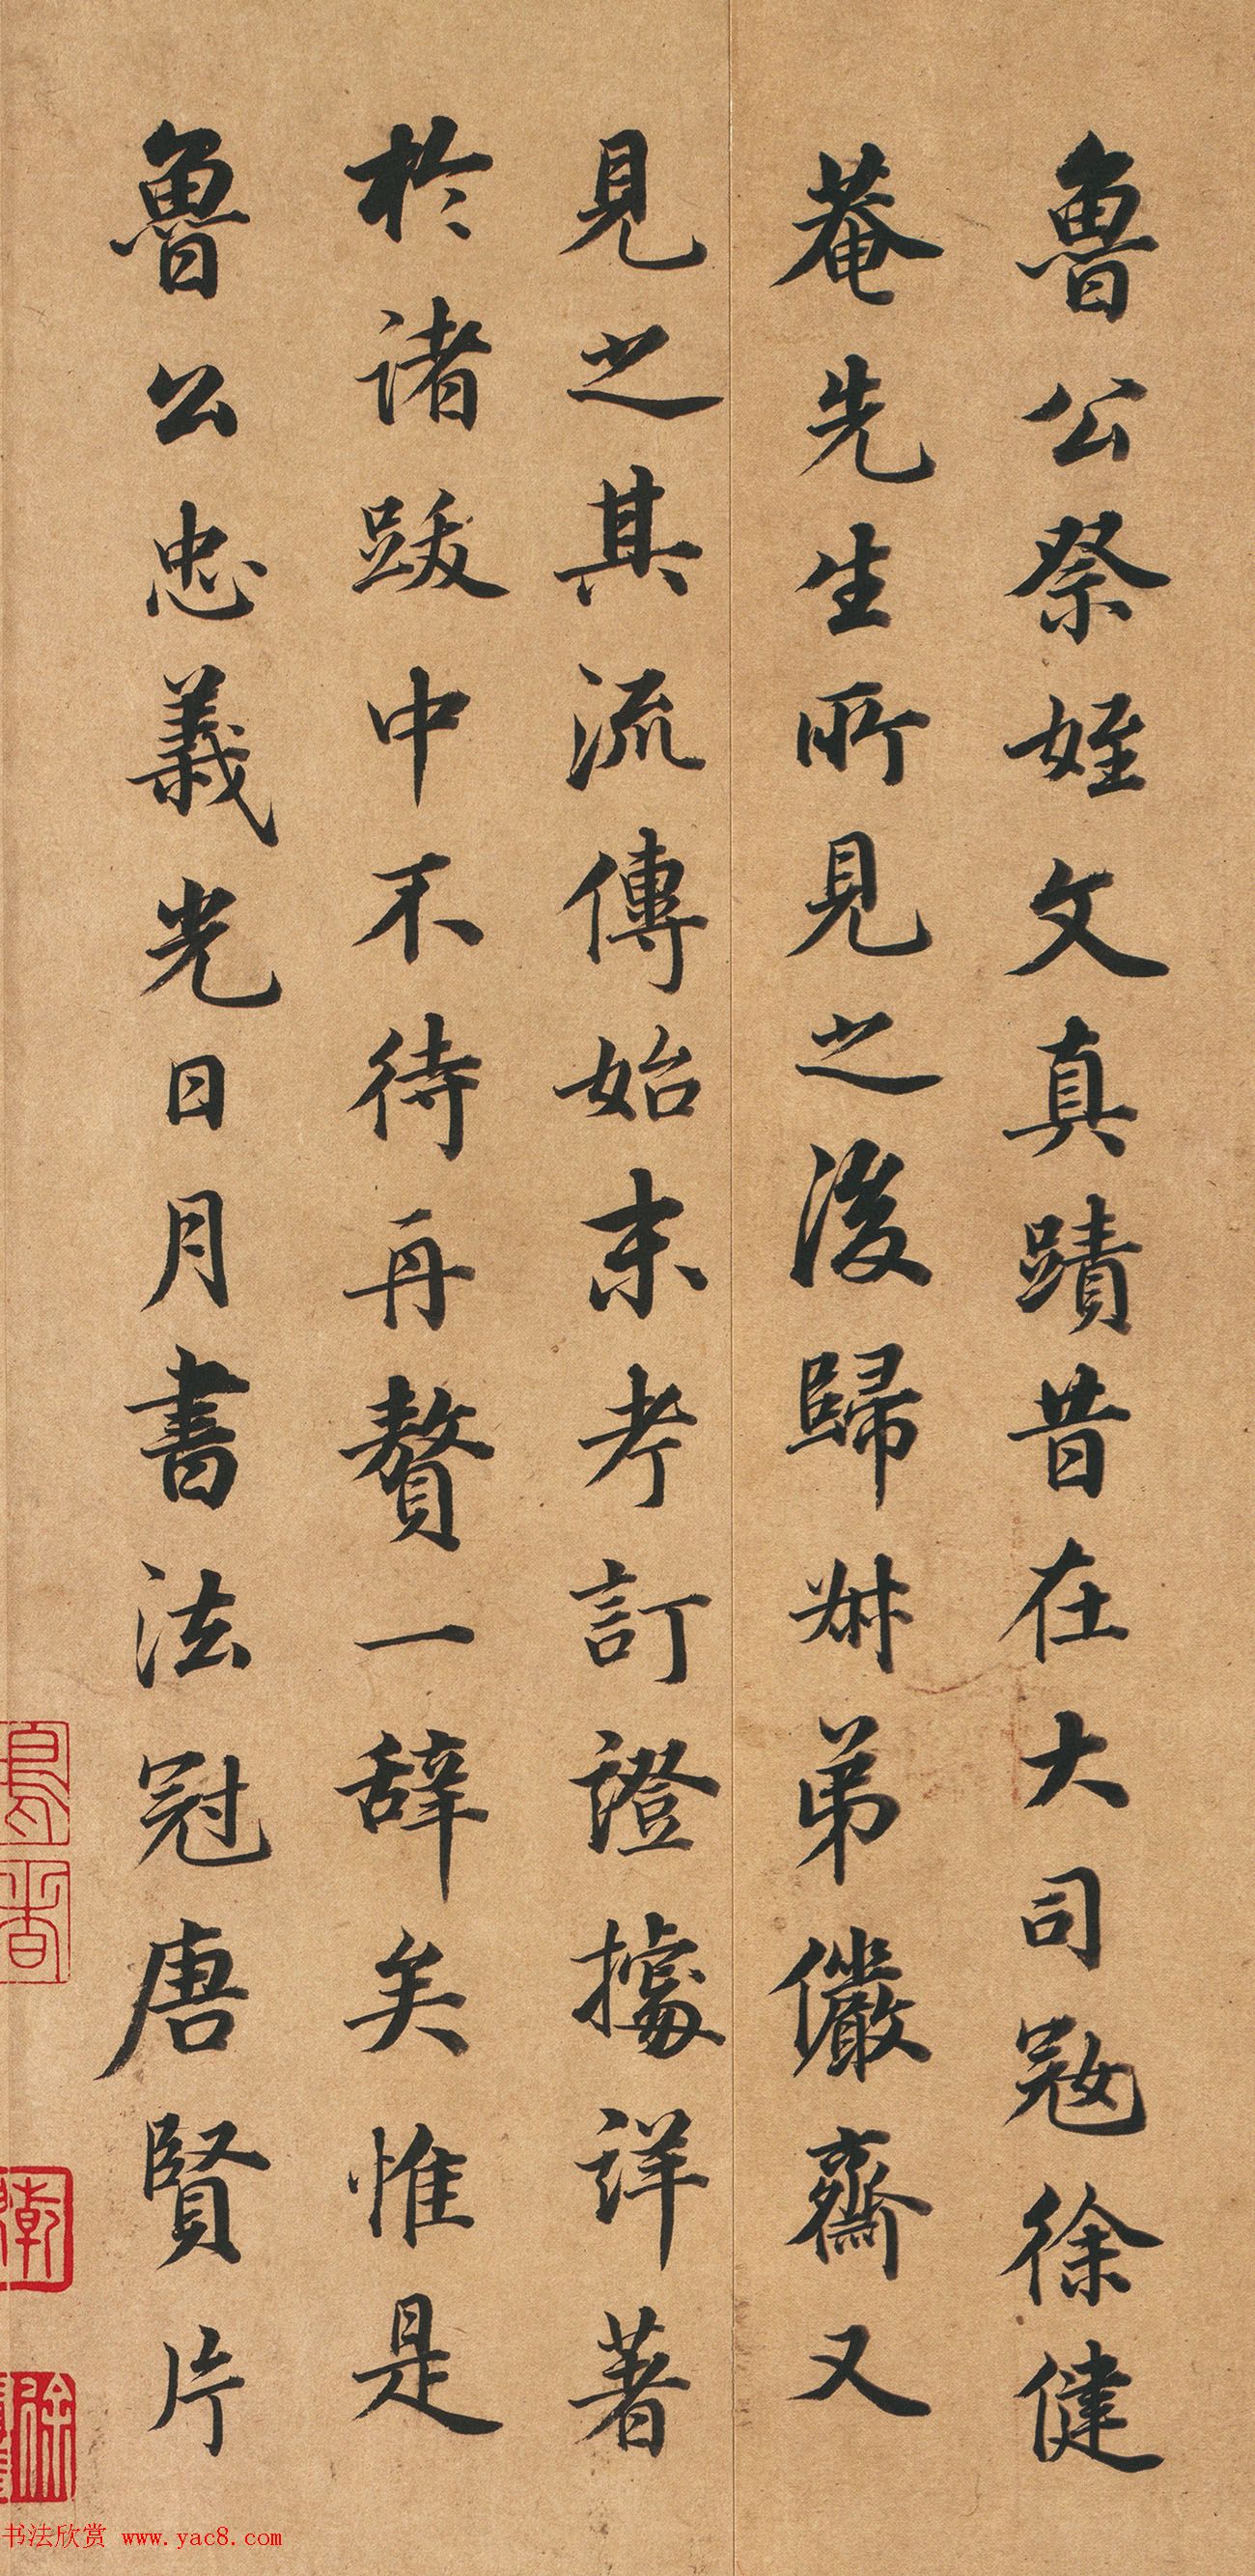 魯公祭姪文真蹟昔在大司寇徐健
菴先生所見之後歸姊弟儼齋又
見之其流傳始末考訂證據詳著
於諸跋中不待再贅一辭矣惟是
魯公忠義光日月書法冠唐賢片
书法欣赏 www.yac8.com